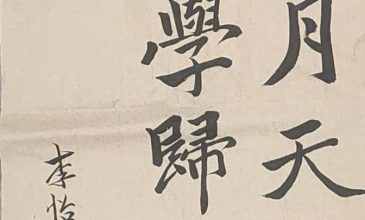 月天
學歸
李怡